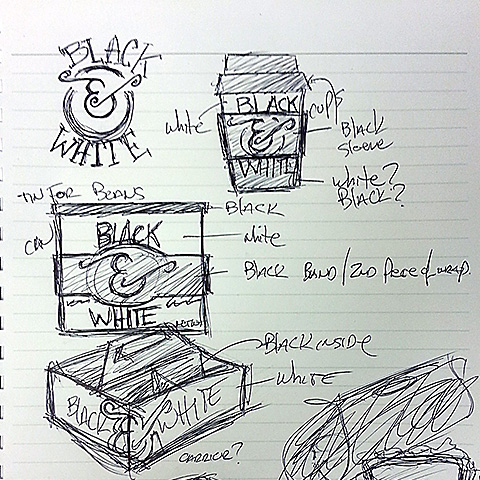 BLACK
&
WHITE
BLACK
&
WHITE
white
CUPS
BLACK
SLEEVE
white?
BLACK?
TIN FOR BEANS
CAN
BLACK
&
WHITE
BLACK
white
BLACK BAND / 2ND PIECE of wrap.
BLACK INSIDE
WHITE
BLACK & WHITE
CARRIER?